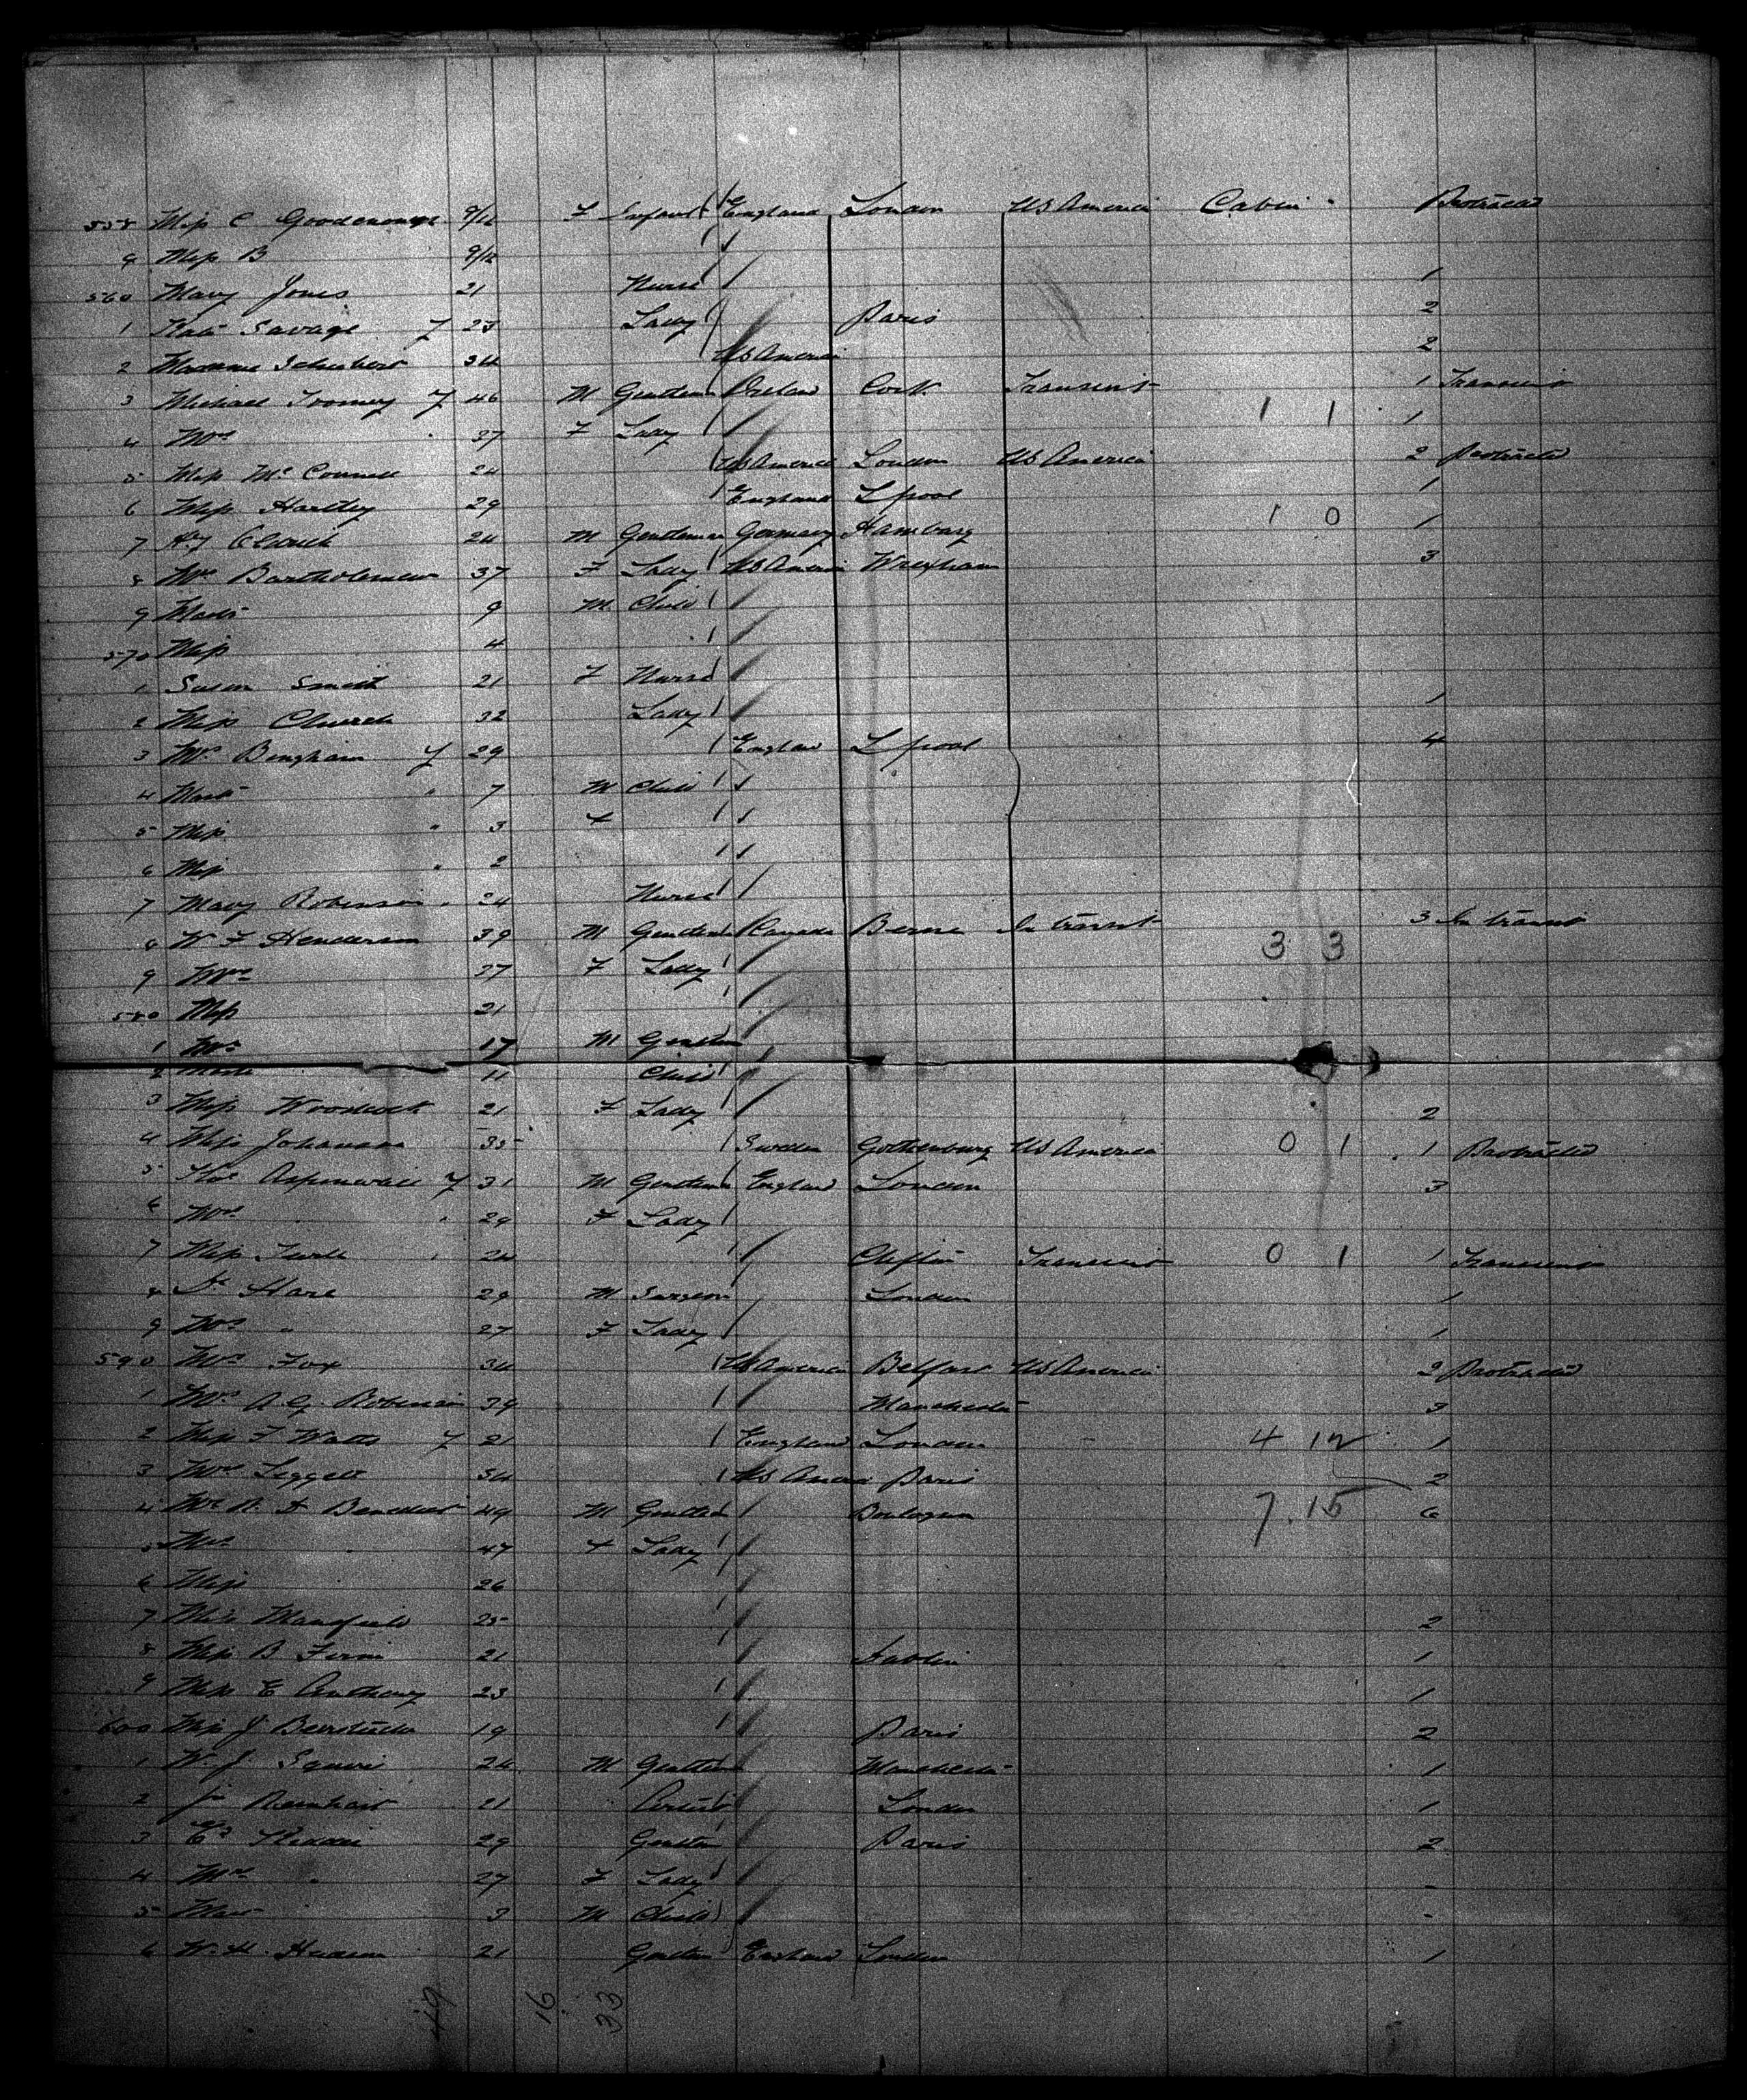 558 Miss C Goodenough 9/12 F Infant England London US America Cabin Protracted
9 Miss B 9/12
560 Mary Jones 21 Nurse 1
1 Kate Savage 23 Lady Paris 2
2 Madame Schubert 34 US America 2
3 Michael Toomey 46 M Gentleman Ireland Cork Transient 1 Transient
4 Mrs 37 F Lady 1 1 1
5 Miss McConnell 24 US America London US America 2 Protracted
6 Miss Hartley 29 England Lpool 1
7 24 M Gentleman Germany Hamburg 1 0 1
8 Mrs Bartholomew 37 F Lady US America Wrexham 3
9 Mast 9 M Child
570 Miss 4
1 Susan Smith 21 F Nurse
2 Miss Church 32 Lady 1
3 Mrs Bingham 29 England Lpool 4
4 Mast " 7 M Child
5 Miss " 3 F
6 Miss " 2
7 Mary Robinson 24 Nurse
8 W F Henderson 39 M Gentleman Canada Berne In transit 3 In transit
9 Mrs 37 F Lady 3 3
580 Miss 21
1 Mr 17 M Gentleman
2 Mast 11 Child
3 Miss Woodcock 21 F Lady 2
4 Miss Johanson 35 Sweden Gothenburg US America 0 1 1 Protracted
5 Thos Aspinwall 31 M Gentleman England London 3
6 Mrs " 29 F Lady
7 Miss 24 Clifton Transient 0 1 1 Transient
8 Dr Hare 29 M Surgeon London 1
9 Mrs " 27 F Lady 1
590 Mrs Fox 34 US America Belfast US America 2 Protracted
1 Mrs A G Robinson 39 Manchester 3
2 Miss F Watts 21 England London 4 12 1
3 Mrs Leggett 34 US America Paris 2
4 Mr Benedict 49 M Gentleman Boulogne 7 15 6
5 Mrs 47 F Lady
6 Miss 26
7 Miss Mansfield 25 2
8 Miss B 21 Dublin 1
9 Miss E Anthony 23 1
600 Miss J 19 Paris 2
1 W. J. Squire 24 M Gentleman Manchester 1
2 Jn Reinhart 21 Artist London 1
3 29 Gentleman Paris 2
4 Mrs " 27 F Lady
5 Mast 3 M Child
6 W. H. 21 Gentleman England London 1
49 16 33